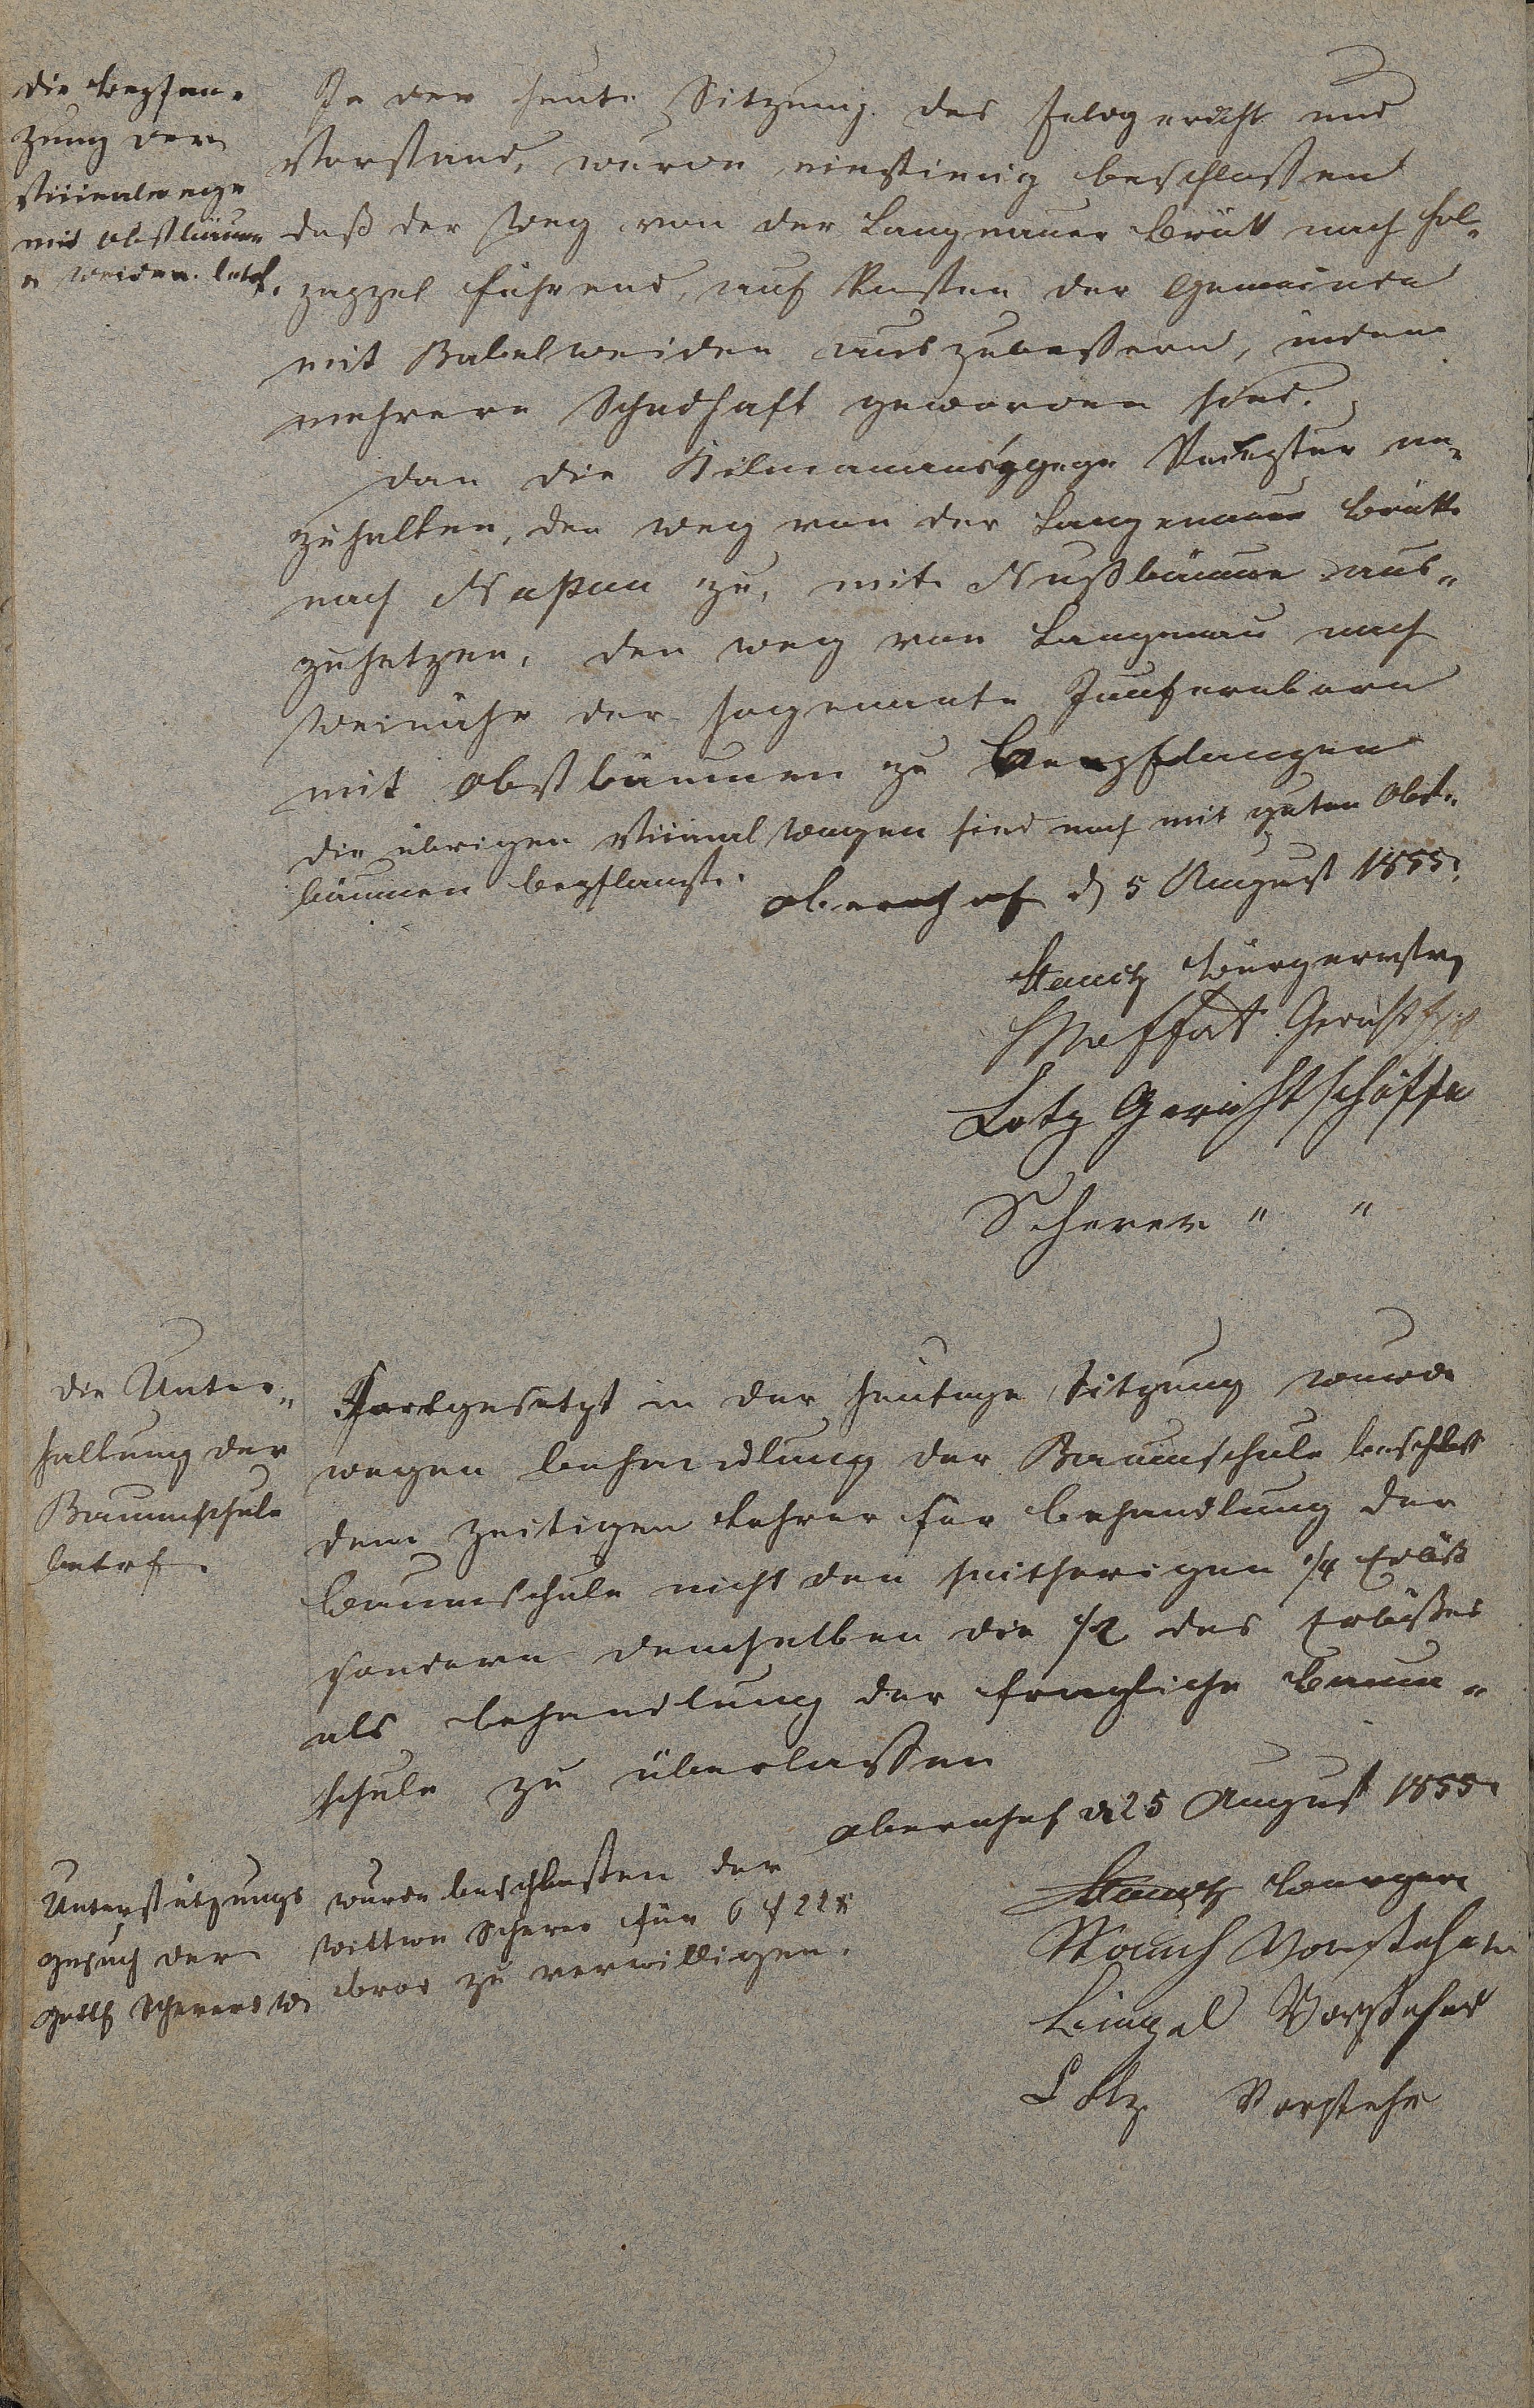 die Bepfan-
zung der
Viinalwege
mit obstbäume
u weiden. betrf.
In der heute Sitzung des Feldgericht und
Vorstand, wurde einstimig beschlossen
daß der Weg von der Langenauer Brük nach Hol-
zappel führend, auf Kosten der Gemeinde
mit Babelweiden auszubessern, indem
mehrere Schadhaft geworden sind.
dan die Pächter an-
zuhalten, den weg von der Langenauer Brük
nach Naßau zu, mit Nußbäume aus-
zusetzen, den weg von Langenau nach
Weinähr der sogenante Jungfernborn
mit obstbäumen zu bepflanzen
die übrigen Viinal wegen sind noch mit guten Obst-
bäumen bepflanzt.
obernhof d 5 August 1855.
Stauch Bürgermstr
Meffert Gerichtsch
Lotz Gerichtschöffe
Scherer " "
die Unter-
haltung der
Baumschule
betrf.
Fortgesetzt in der heutige Sitzung wurde
wegen behandlung der Baumschule beschloss
dem zeitigen Lehrer für behandlung der
Baumschule nicht den seitherigen 1/4 Erlöß
sondern demselben die 1/2 des Erlößes
als behandlung der fragliche Baum-
schule zu überlassen
obernhof d 25 August 1855.
Unterstützungs
gesuch der
Gottf Scherers W
wurde beschlossen der
Wittwe Scherer für 6 f 22 x
brod zu verwilligen.
Stauch Burgerm
Stauch Vorsteher
Limpel Vorsteher
Lotz Vorstehr